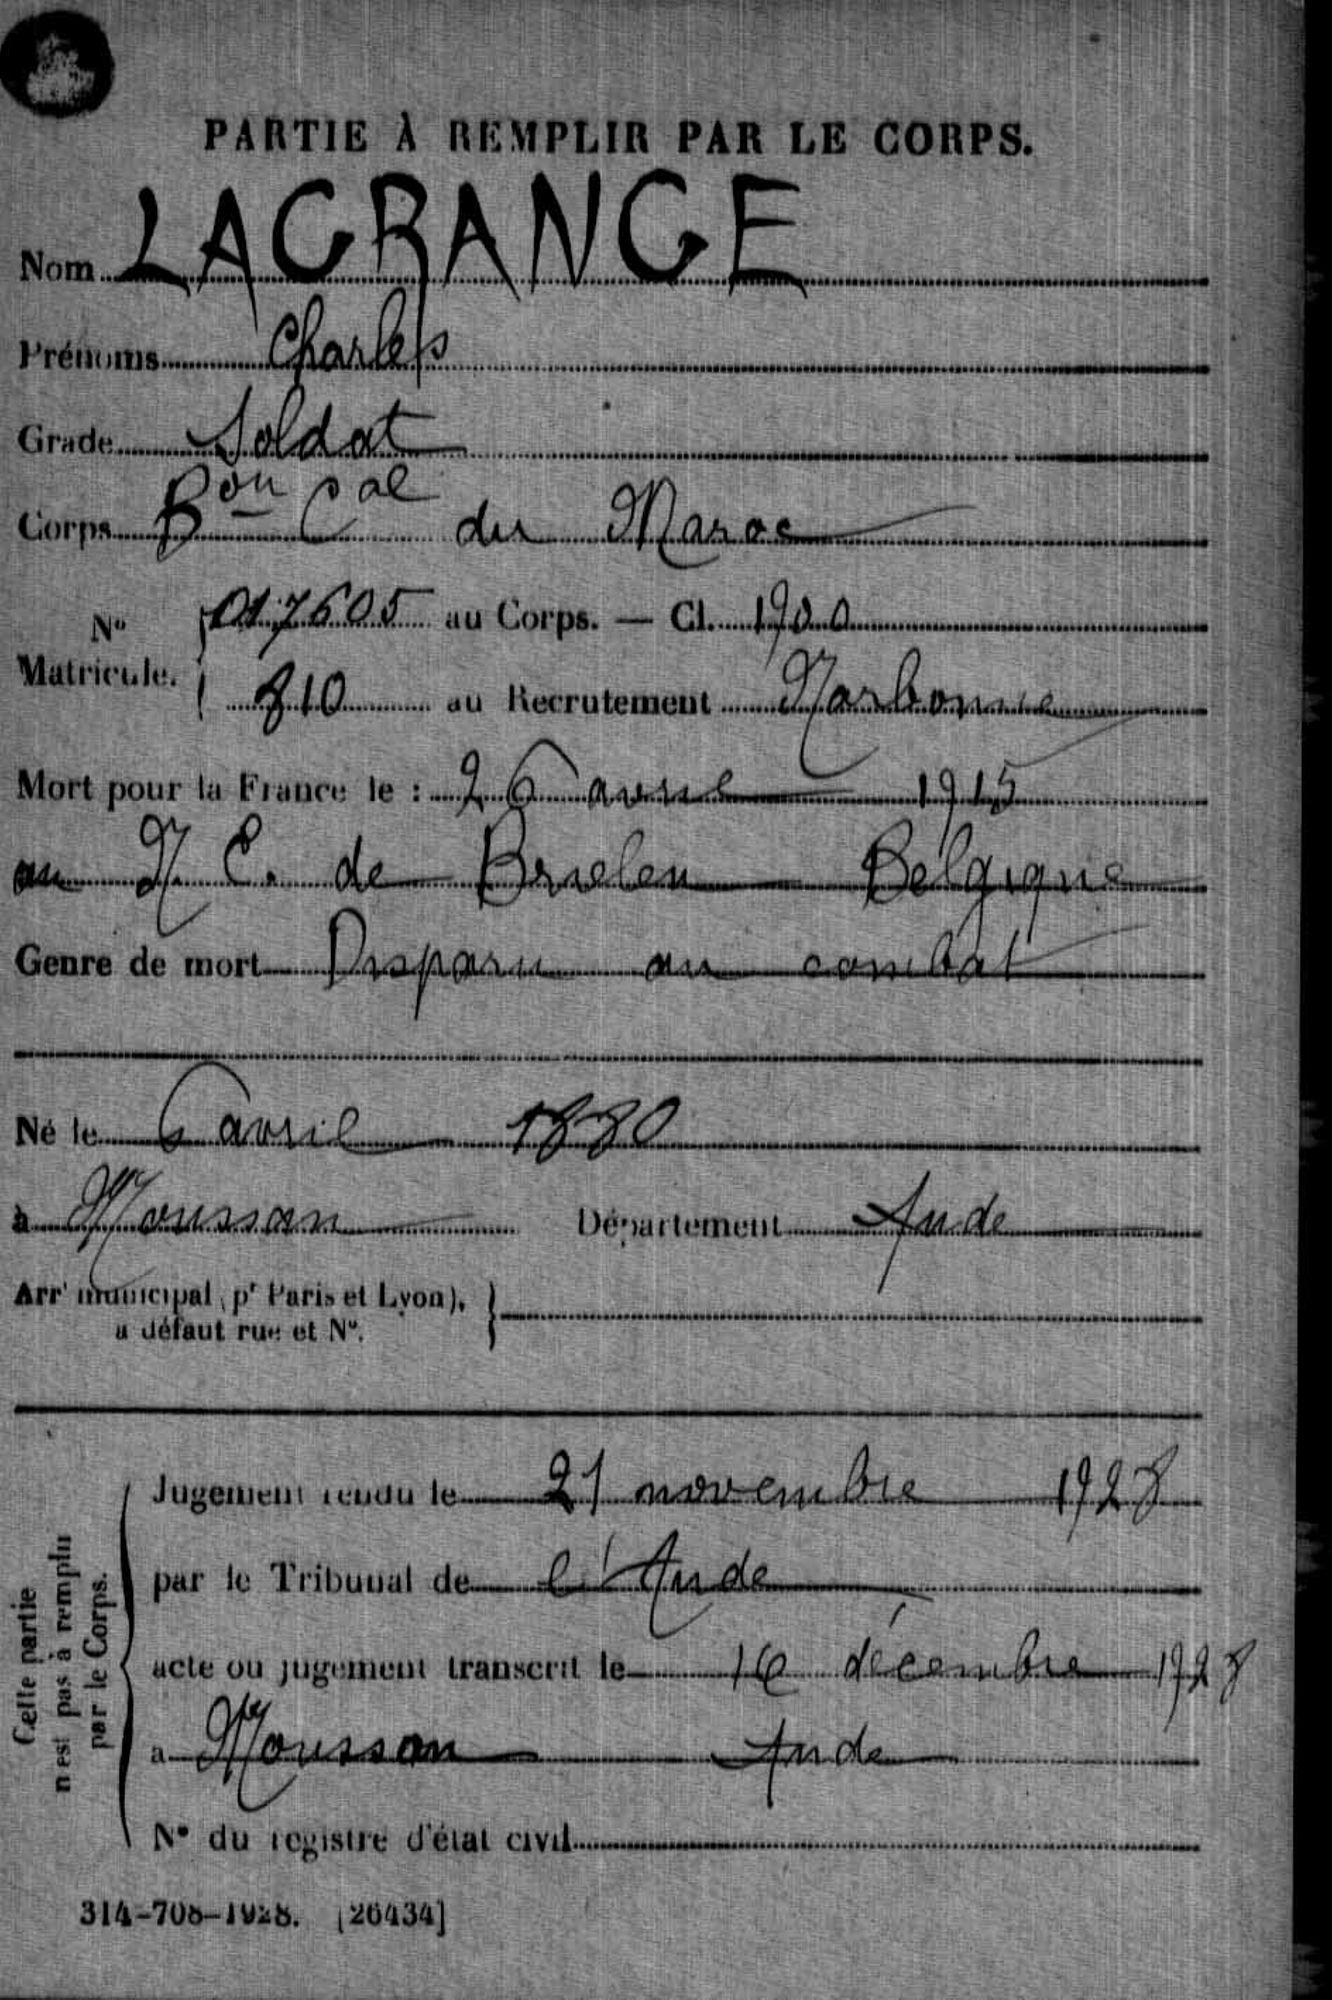 PARTIE À REMPLIR PAR LE CORPS.
Nom LAGRANGE
Prénoms Charles
Grade Soldat
Corps Bon Cal du Maroc
No Matricule. 017605 au Corps. — Cl. 1900
810 au Recrutement Narbonne
Mort pour la France le : 26 avril 1915
au N. E. de Brielen Belgique
Genre de mort Disparu au combat
Né le 6 avril 1880
à Moussan Département Aude
Arrt municipal (pr Paris et Lyon),
à défaut rue et No.
Cette partie
n'est pas à remplir
par le Corps.
Jugement rendu le 21 novembre 1928
par le Tribunal de l'Aude
acte ou jugement transcrit le décembre 1928
à Moussan Aude
No du registre d'état civil
314-708-1928. [26434]